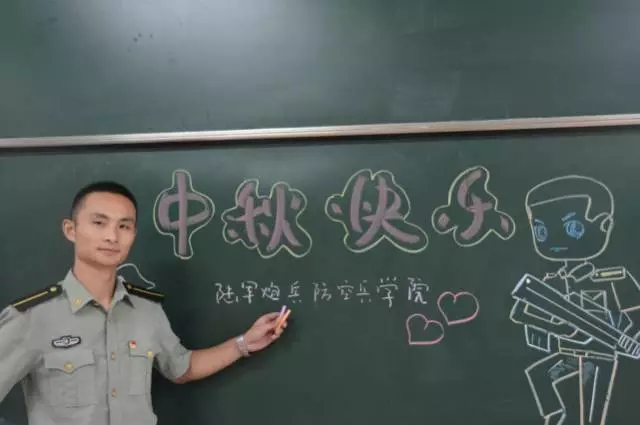 中秋快乐
陆军炮兵防空兵学院